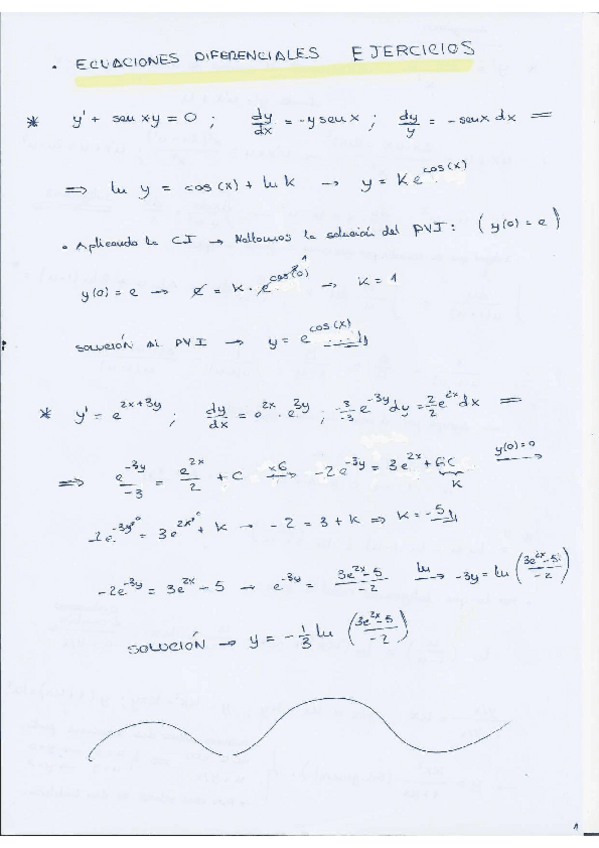 · ECUACIONES DIFERENCIALES EJERCICIOS
* y' + sen xy = 0 ; dy/dx = -y sen x ; dy/y = - senx dx =
=> ln y = cos(x) + ln k → y = K e^cos(x)
· Aplicando la CI → Hallamos la solución del PVI : (y(0) = e)
y(0) = e → e = k · e^cos(0) 1 → k = 1
SOLUCIÓN al PVI → y = e^cos(x)
* y' = e^2x+3y ; dy/dx = e^2x · e^3y ; -3/-3 e^-3y dy = 2/2 e^2x dx =
=> e^-3y/-3 = e^2x/2 + C x6 → -2e^-3y = 3e^2x + 6C K y(0)=0 →
-2e^-3y 0 = 3e^2x 0 + k → -2 = 3 + k => k = -5
-2e^-3y = 3e^2x - 5 → e^-3y = 3e^2x-5/-2 ln → -3y = ln (3e^2x-5/-2)
SOLUCIÓN → y = -1/3 ln (3e^2x-5/-2)
1